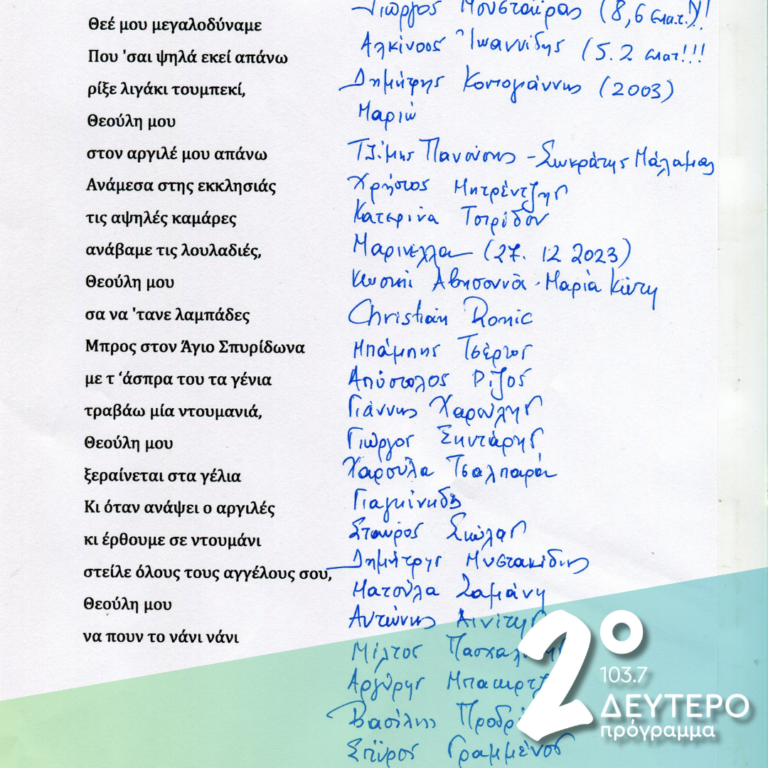 Θεέ μου μεγαλοδύναμε
Που 'σαι ψηλά εκεί απάνω
ρίξε λιγάκι τουμπεκί,
Θεούλη μου
στον αργιλέ μου απάνω
Ανάμεσα στης εκκλησιάς
τις αψηλές καμάρες
ανάβαμε τις λουλαδιές,
Θεούλη μου
σα να 'τανε λαμπάδες
Μπρος στον Άγιο Σπυρίδωνα
με τ 'άσπρα του τα γένια
τραβάω μία ντουμανιά,
Θεούλη μου
ξεραίνεται στα γέλια
Κι όταν ανάψει ο αργιλές
κι έρθουμε σε ντουμάνι
στείλε όλους τους αγγέλους σου,
Θεούλη μου
να πουν το νάνι νάνι
Γιώργος Μουσταΐρας (8,6 εκατ.!)!
Αλκίνοος Ιωαννίδης (5.2 εκατ!!!
Δημήτρης Κοντογιάννης (2003)
Μαριώ
Τζίμης Πανούσης - Σωκράτης Μάλαμας
Χρήστος Μητρέντζης
Κατερίνα Τσιρίδου
Μαρινέλλα (27. 12 2023)
Αβησσυνία - Μαρία Κώτη
Christian Ronic
Μπάμπης Τσέρτος
Απόστολος Ρίζος
Γιάννης Χαρούλης
Γιώργος Ξηντάρης
Χαρούλα Τσαλπαρά
Γιαγκίνηδες
Σταύρος Σιόλας
Δημήτρης Μυστακίδης
Ματούλα Ζαμάνη
Αντώνης Αινίτης
Μίλτος
Αργύρης
Βασίλης
Σπύρος Γραμμένος
2ο
103.7
ΔΕΥΤΕΡΟ
πρόγραμμα